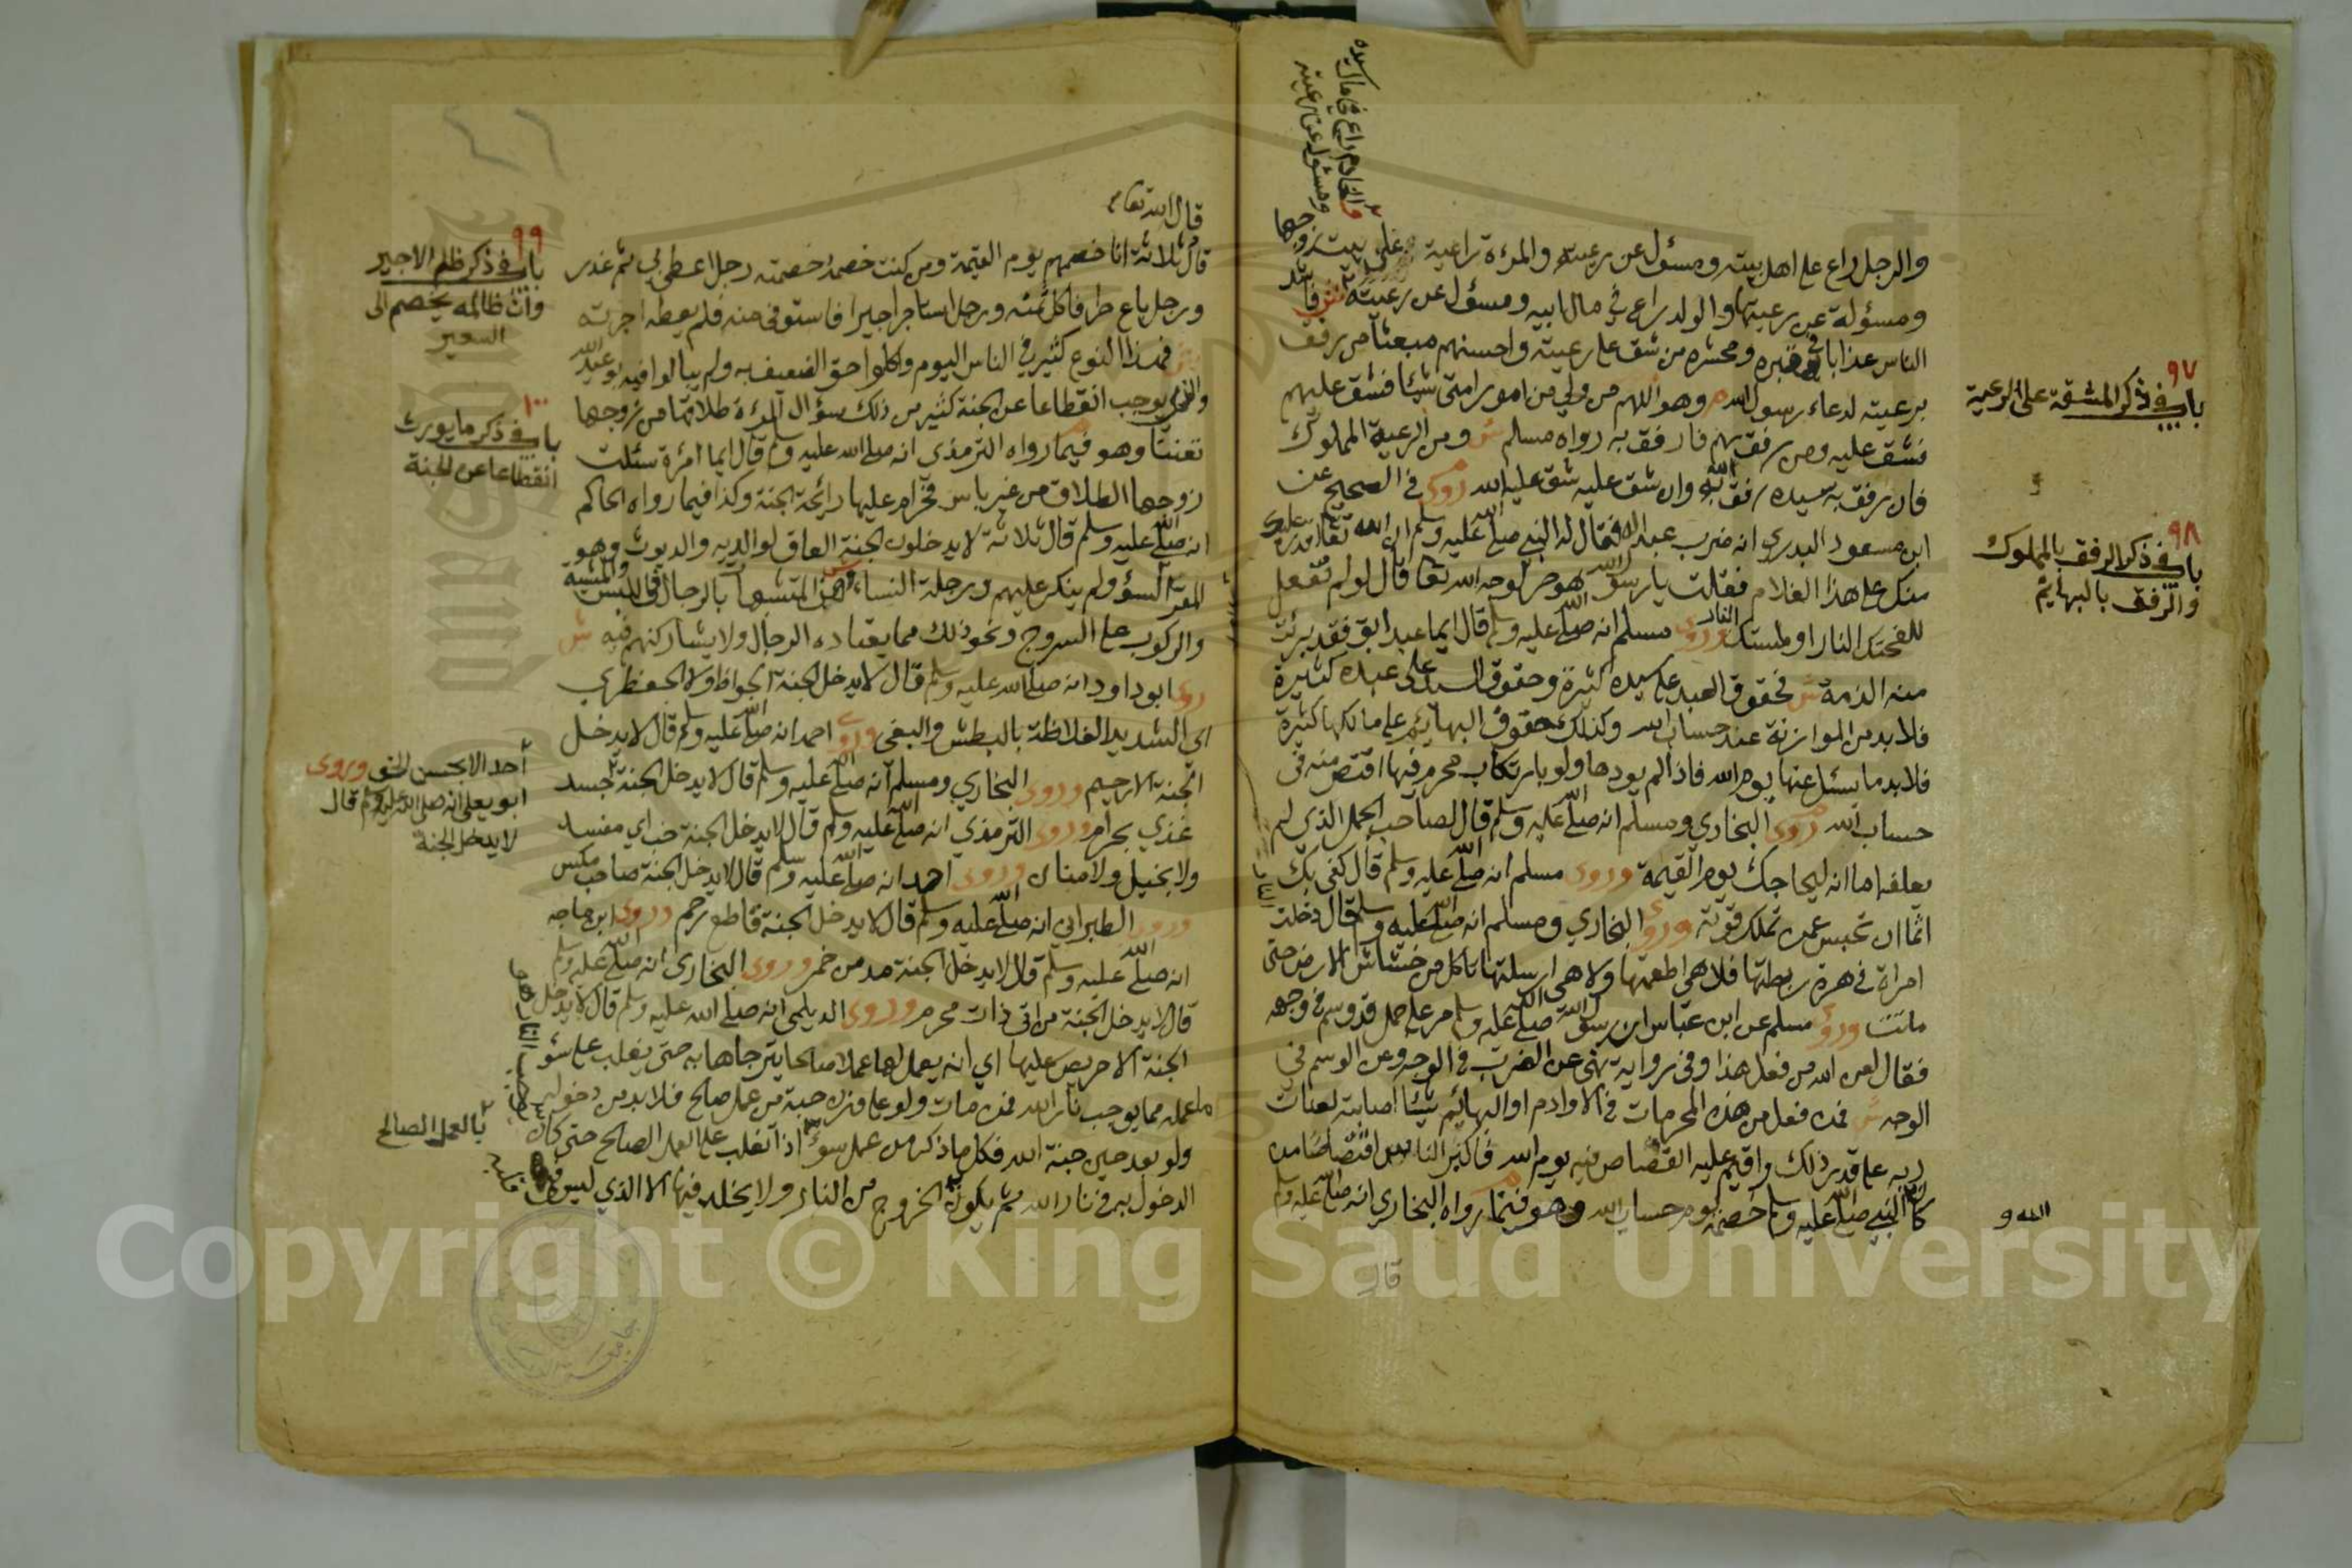 والرجل راع على اهل بيته ومسؤل عن رعيته والمرءة راعية على بيت زوجها
ومسؤلة عن رعيتها والولد راع في مال ابيه ومسؤل عن رعيته ش فاشد
والخادم راع في مال سيده
ومسؤل عن رعيته
الناس عذابا في قبره ومحشره من شق على رعيته واحسنهم مبعثا من رفق
برعيته لدعاء رسول الله م وهو اللهم من ولي من امور امتي شيئا فشق عليهم
فشق عليه ومن رفق بهم فارفق به رواه مسلم ش ومن الرعية المملوك
فان رفق به سيده رفق الله به وان شق عليه شق عليه الله روى في الصحيح عن
ابن مسعود البدري انه ضرب عبدا له فقال له النبي صلى الله عليه وسلم ان الله تعا اقدر عليك
منك على هذا الغلام فقلت يا رسول الله هو حر لوجه الله تعا قال لو لم تفعل
للفحتك النار او لمستك النار وروى مسلم انه صلى الله عليه وسلم قال ايما عبد ابق فقد برئت
منه الذمة ش فحقوق العبد على سيده كثيرة وحقوق السيد على عبده كثيرة
فلا بد من الموازنة عند حساب الله وكذلك حقوق البهائم على مالكها كثيرة
فلا بد ما يسئل عنها يوم الله فاذا لم يودها ولو بارتكاب محرم فيها اقتص منه في
حساب الله روى البخاري ومسلم انه صلى الله عليه وسلم قال لصاحب الجمل الذي لم
يعلفه اما انه ليحاجك يوم القيمة وروى مسلم انه صلى الله عليه وسلم قال كفى بك
اثما ان تحبس عمن تملك قوته وروى البخاري ومسلم انه صلى الله عليه وسلم قال دخلت
امراة في هرة ربطتها فلا هي اطعمتها ولا هي ارسلتها تاكل من خشاش الارض حتى
ماتت وروى مسلم عن ابن عباس ان رسول الله صلى الله عليه وسلم مر على حمار قد وسم في وجهه
فقال لعن الله من فعل هذا وفي رواية نهى عن الضرب في الوجه وعن الوسم في
الوجه ش فمن فعل من هذه المحرمات في الاوادم او البهائم شيئا اصابته لعنات
ربه على قدر ذلك واقيم عليه القصاص فيه يوم الله فاكثر الناس اقتصاصا من
كان النبي صلى الله عليه وسلم خصمه يوم حساب الله وهو فيما رواه البخاري انه صلى الله عليه وسلم
قال
٩٧
باب في ذكر المشقة على الرعية
٩٨
باب في ذكر الرفق بالمملوك
والرفق بالبهائم
قال الله تعا
قال ثلاثة انا خصمهم يوم القيمة ومن كنت خصمه خصمته رجل اعطى بي ثم غدر
ورجل باع حرا فاكل ثمنه ورجل استاجر اجيرا فاستوفى منه فلم يعطه اجرته
ش فهذا النوع كثير في الناس اليوم واكلوا حق الضعيف به ولم يبالوا فيه بوعيد الله
والذي يوجب انقطاعا عن الجنة كثير من ذلك سؤال المرءة طلاقها من زوجها
تعنتا وهو فيما رواه الترمذي انه صلى الله عليه وسلم قال ايما امرءة سئلت
زوجها الطلاق من غير باس فحرام عليها رائحة الجنة وكذا فيما رواه الحاكم
انه صلى الله عليه وسلم قال ثلاثة لا يدخلون الجنة العاق لوالديه والديوث وهو
المقر السؤ ولم ينكر عليهم ورجلة النساء المتشبهة بالرجال في اللبس والمشية
والركوب على السروج ونحو ذلك مما يعتاده الرجال ولا يشاركنهم فيه ش
روى ابو داود انه صلى الله عليه وسلم قال لا يدخل الجنة الجواظ ولا الجعظري
اي الشديد الغلاظة بالبطش والبغي وروى احمد انه صلى الله عليه وسلم قال لا يدخل
الجنة الا رحيم وروى البخاري ومسلم انه صلى الله عليه وسلم قال لا يدخل الجنة جسد
غذي بحرام وروى الترمذي انه صلى الله عليه وسلم قال لا يدخل الجنة خب اي مفسد
ولا بخيل ولا منان وروى احمد انه صلى الله عليه وسلم قال لا يدخل الجنة صاحب مكس
وروى الطبراني انه صلى الله عليه وسلم قال لا يدخل الجنة قاطع رحم وروى ابن ماجه
انه صلى الله عليه وسلم قال لا يدخل الجنة مدمن خمر وروى البخاري انه صلى الله عليه وسلم
قال لا يدخل الجنة من اتى ذات محرم وروى الديلمي انه صلى الله عليه وسلم قال لا يدخل
الجنة الا حريص عليها اي انه يعمل لها عملا صالحا يترجاها به حتى يغلب على سؤ
ما عمله مما يوجب نار الله فمن مات ولو على وزن حبة من عمل صالح فلا بد من دخوله
ولو بعد حين جنة الله فكل ما ذكر من عمل سوء اذا تغلب على العمل الصالح حتى كان
الدخول به في نار الله ثم يكون الخروج من النار ولا يخلد فيها الا الذي ليس
٩٩
باب في ذكر ظلم الاجير
وان ظالمه يخصم الى
السعير
١٠٠
باب في ذكر ما يورث
انقطاعا عن الجنة
وروى
ابو يعلى انه صلى الله عليه وسلم قال
لا يدخل الجنة
بالعمل الصالح
Copyright © King Saud University